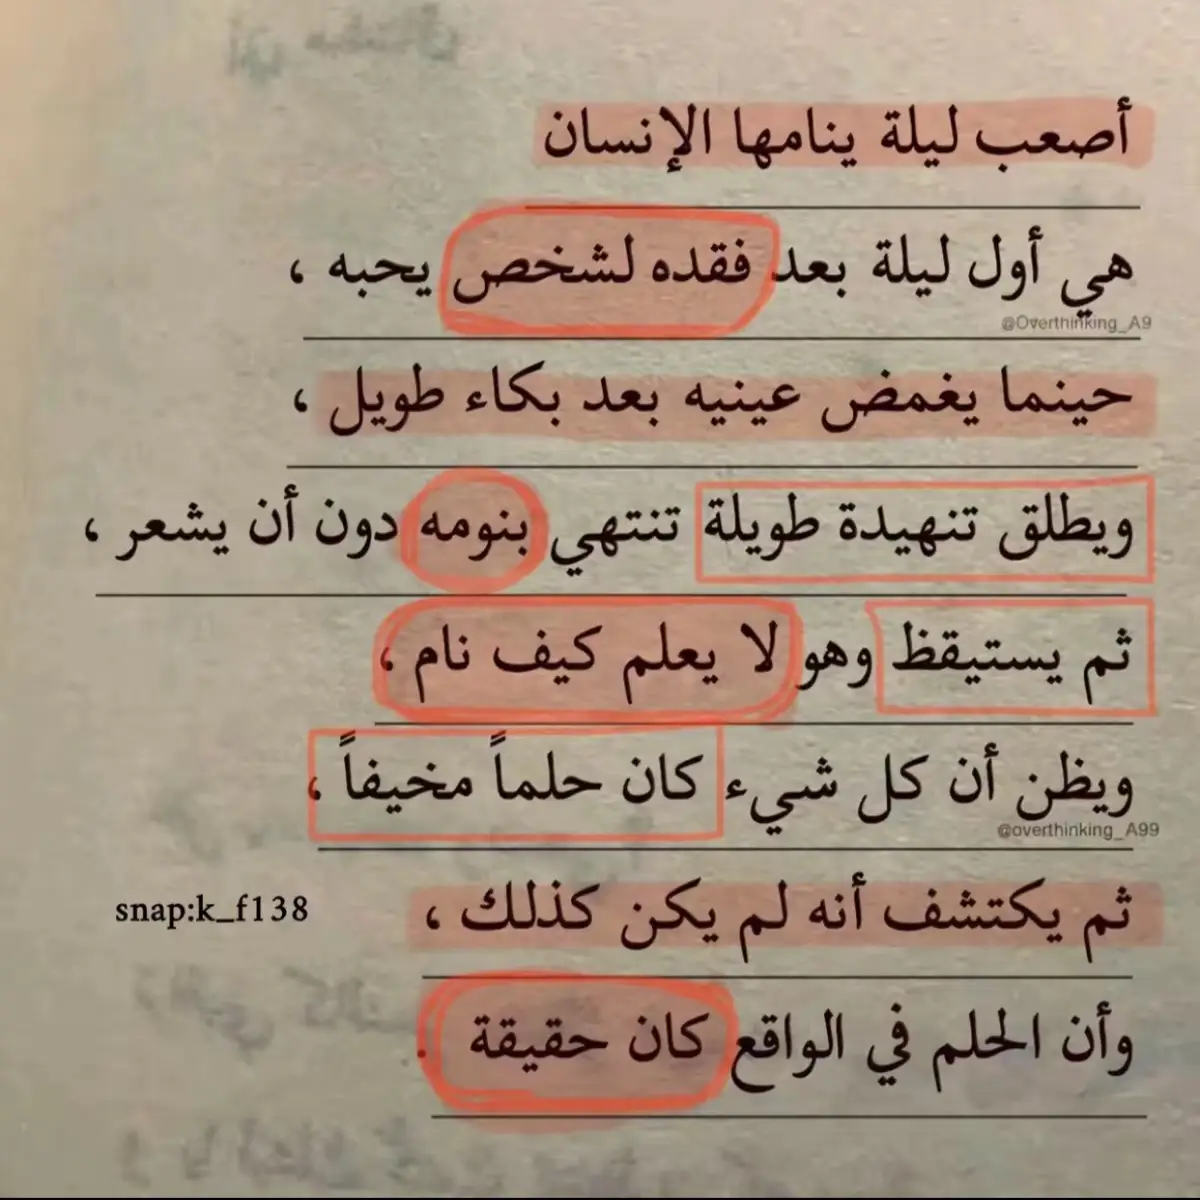 أصعب ليلة ينامها الإنسان
هي أول ليلة بعد فقده لشخص يحبه ،
@Overthinking_A9
حينما يغمض عينيه بعد بكاء طويل ،
ويطلق تنهيدة طويلة تنتهي بنومه دون أن يشعر ،
ثم يستيقظ وهو لا يعلم كيف نام ،
ويظن أن كل شيء كان حلماً مخيفاً ،
@overthinking_A99
ثم يكتشف أنه لم يكن كذلك ،
snap:k_f138
وأن الحلم في الواقع كان حقيقة .